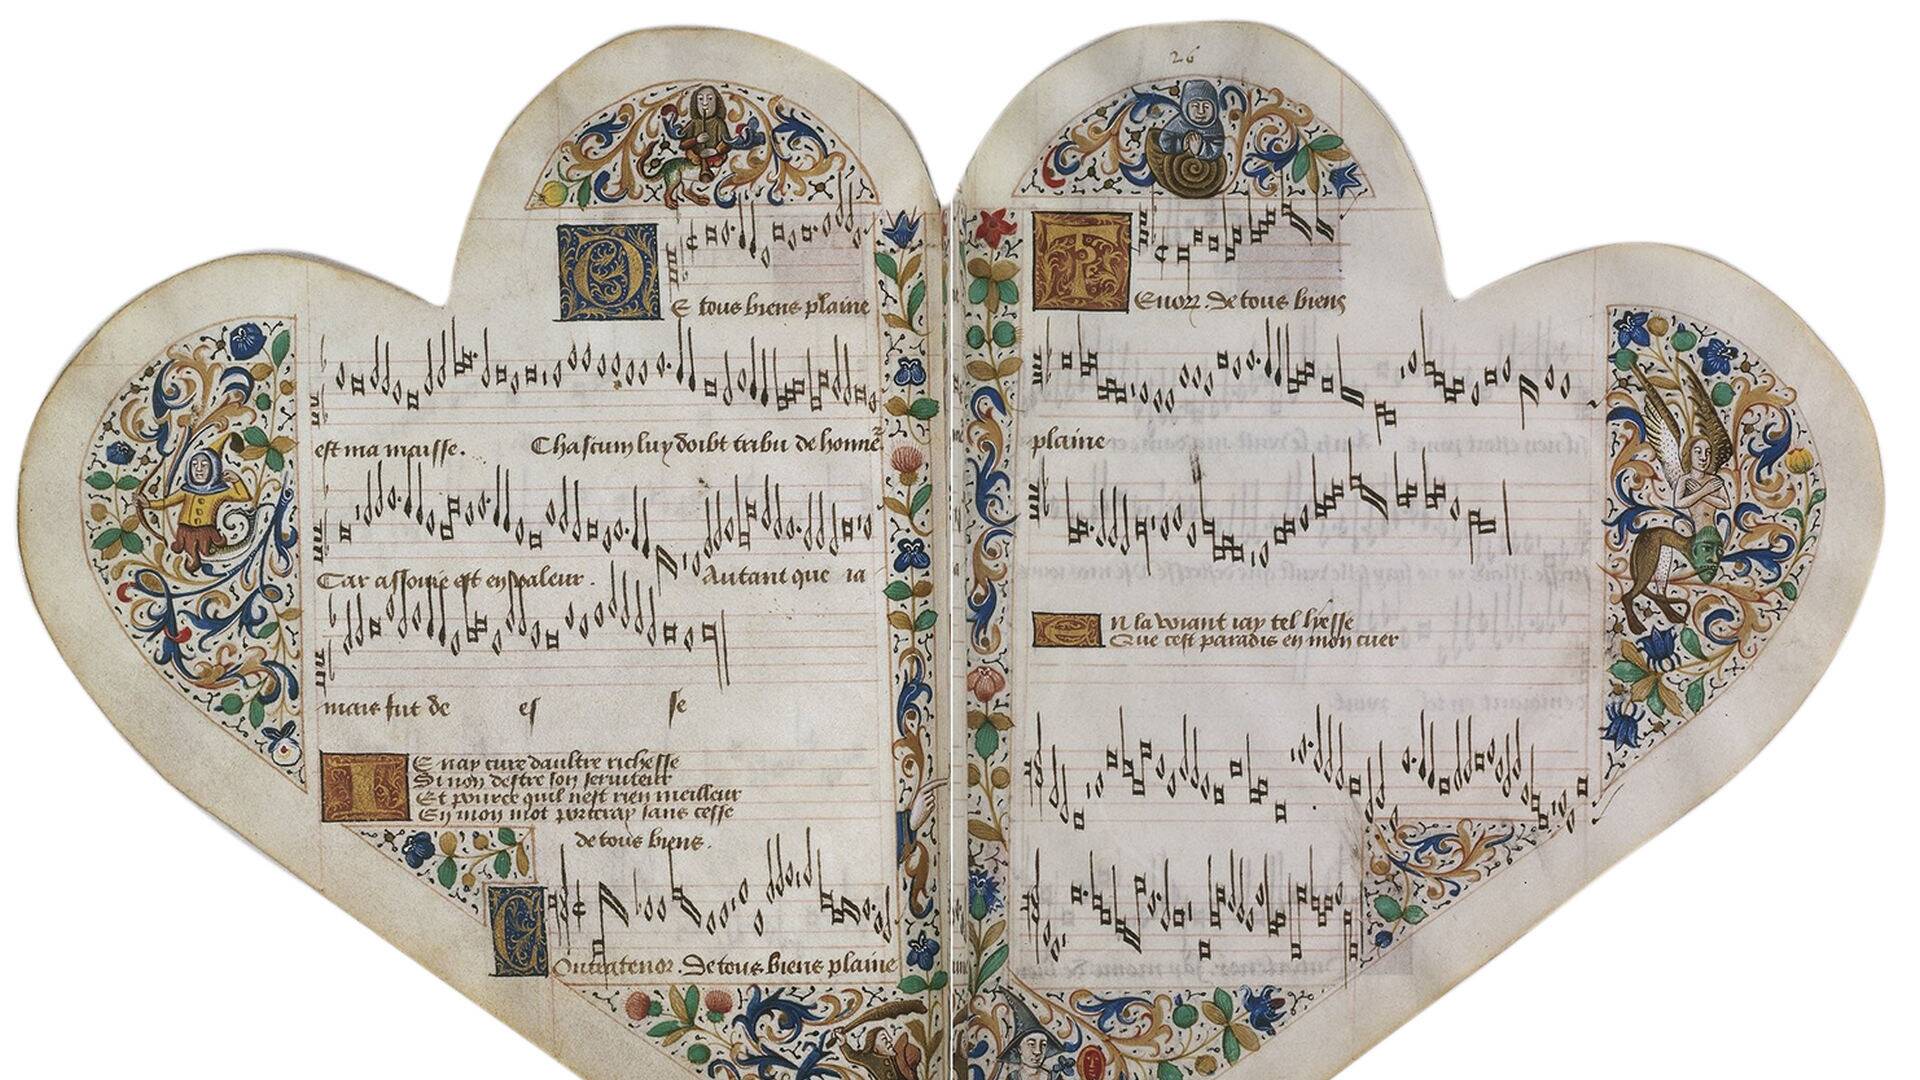 De tous biens plaine
est ma maisse. Chascun luy doibt tribu de honne
Car assouie est en valeur. Autant que ia
mais fut de es se
Ie nay cure daultre richesse
Si non destre son seruiteur
Et pource quil nest rien meilleur
En mon mot porteray sans cesse
de tous biens.
Contratenor. De tous biens plaine
26
Tenor. De tous biens
plaine
En la voiant iay tel lyesse
Que cest paradis en mon cuer